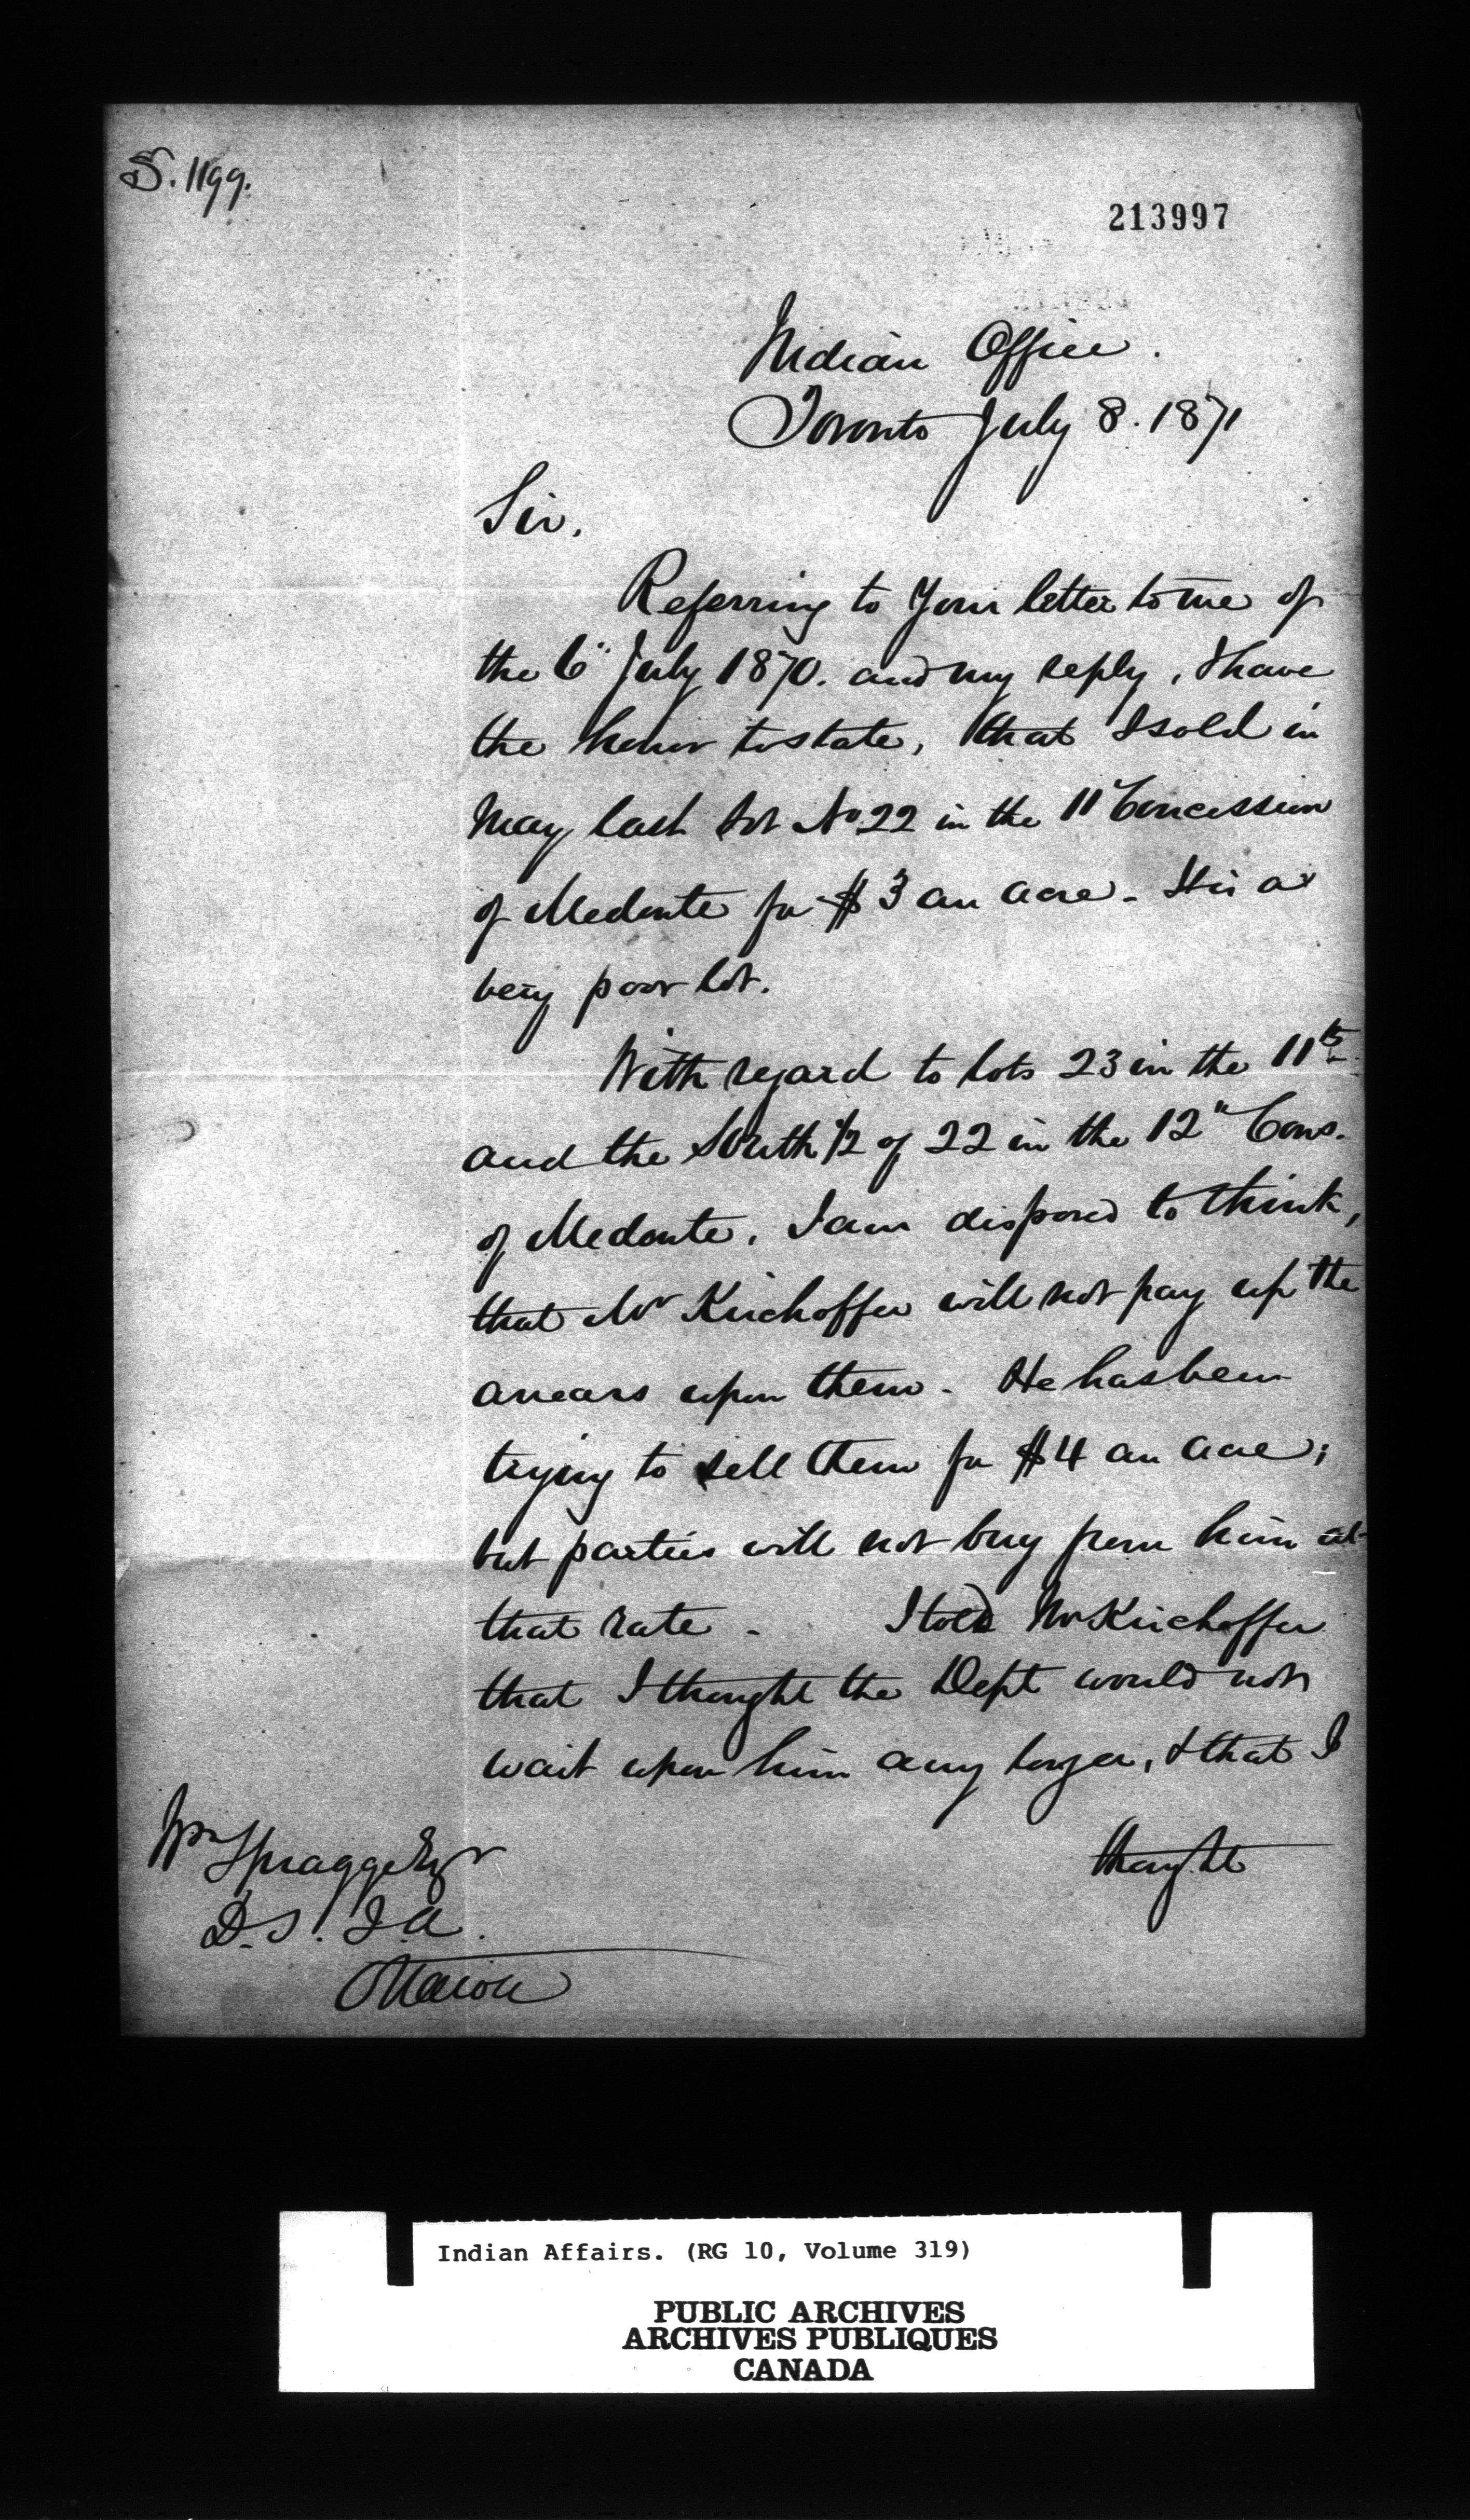 S. 1199.
213997
Indian Office.
Toronto July 8. 1871
Sir,
Referring to Your letter to me of
the 6" July 1870. and my reply, I have
the honor to state, that I sold in
May last Lot No 22 in the 11" Concession
of Medonte for $3 an acre. It is a
very poor lot.
With regard to lots 23 in the 11th
and the South 1/2 of 22 in the 12" Cons.
of Medonte, I am disposed to think,
that Mr Kirchoffer will not pay up the
arrears upon them. He has been
trying to sell them for $4 an acre;
but parties will not buy from him at
that rate. I told Mr Kirchoffer
that I thought the Dept would not
wait upon him any longer, & that I
thought
Wm Spragge Esqr
D.S.I.A.
Ottawa
Indian Affairs. (RG 10, Volume 319)
PUBLIC ARCHIVES
ARCHIVES PUBLIQUES
CANADA